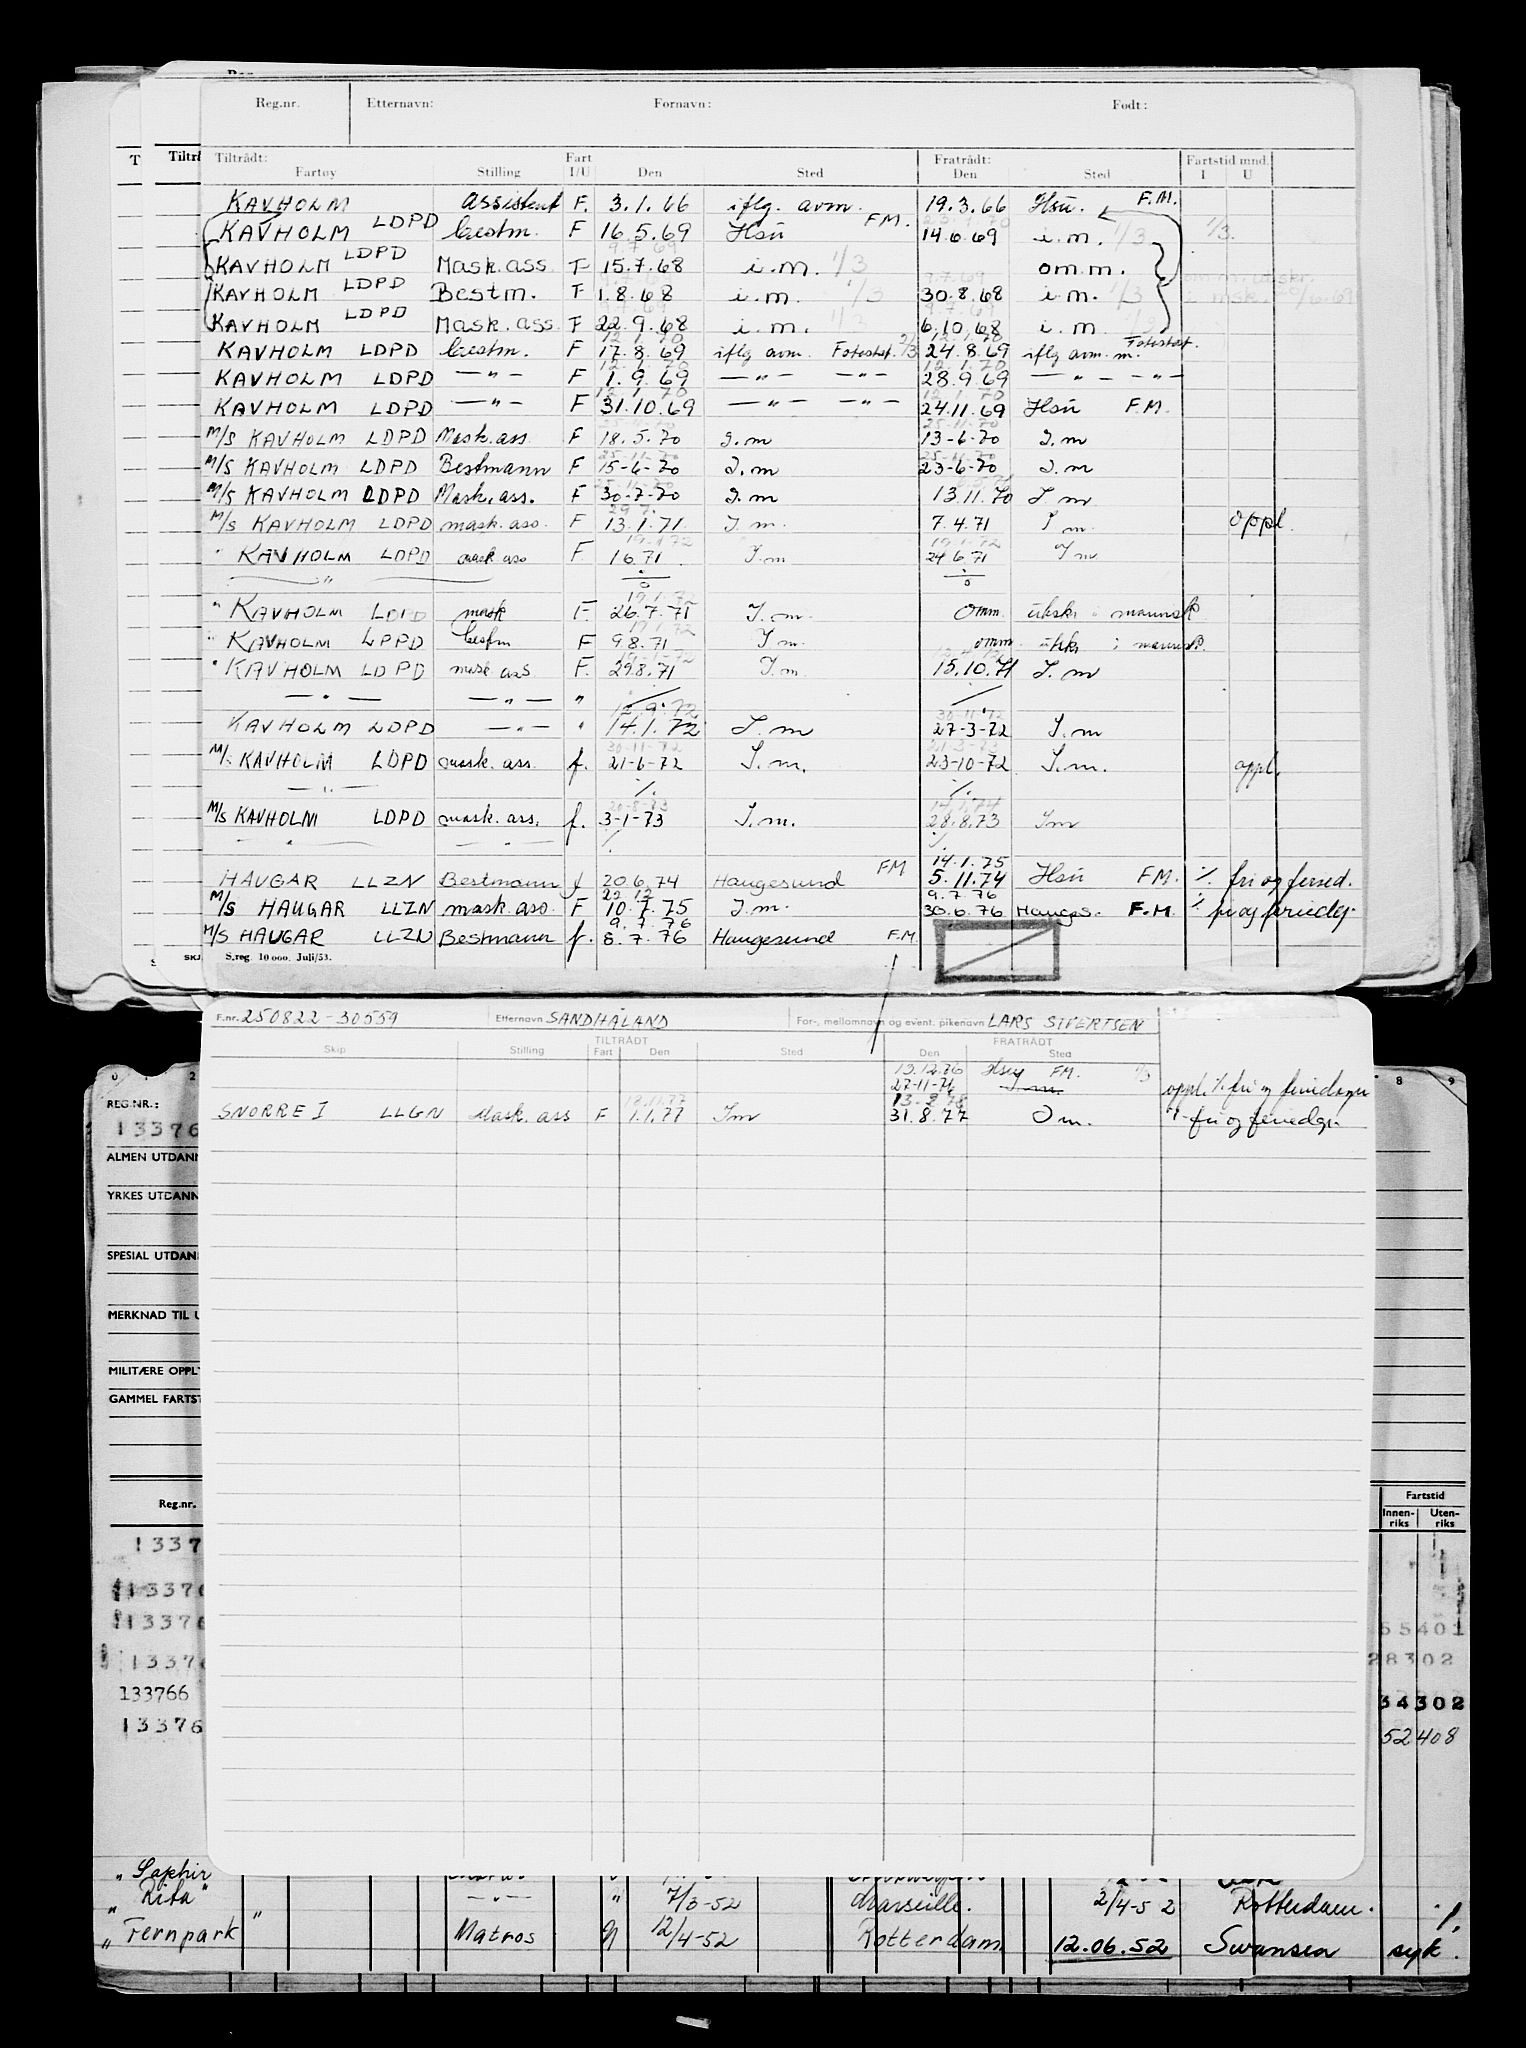 Reg.nr. Etternavn: Fornavn: Født:
Tiltrådt: Fart Fratrådt: Fartstid mnd.
Fartøy Stilling I/U Den Sted Den Sted I U
KAVHOLM assistent F. 3.1.66 iflg. avm. 19.3.66 Hsu. F.M.
KAVHOLM LDPD bestm. F 16.5.69 Hsu F.M. 14.6.69 i.m. 1/3 1/3.
KAVHOLM LDPD Mask.ass. F 15.7.68 i.m. 1/3 omm.
KAVHOLM LDPD Bestm. F 1.8.68 i.m. 1/3 30.8.68 i.m. 1/3
KAVHOLM LDPD Mask.ass. F 22.9.68 i.m. 1/3 6.10.68 i.m.
KAVHOLM LDPD bestm. F 17.8.69 iflg avm. Fotostat. 2/3 24.8.69 iflg avm. m. Fotostat.
KAVHOLM LDPD —"— F 1.9.69 —"— —"— 28.9.69 —"— —"—
KAVHOLM LDPD —"— F 31.10.69 —"— —"— 24.11.69 Hsu F.M.
M/S KAVHOLM LDPD Mask.ass. F 18.5.70 I.m 13-6-70 I.m
M/S KAVHOLM LDPD Bestmann F 15-6-70 I.m 23-6-70 I.m
M/S KAVHOLM LDPD Mask.ass. F 30-7-70 I.m 13.11.70 I m
M/S KAVHOLM LDPD mask.ass. F 13.1.71. I.m. 7.4.71 I m. oppl.
" KAVHOLM LDPD mask ass F. 1 6.71 I.m 24.6.71 I m
"
" KAVHOLM LDPD mask F. 26.7.71 I.m. Omm. utskr i mannsk
" KAVHOLM LDPD bestm F 9.8.71 I m. omm. utskr i mannsk.
" KAVHOLM LDPD mask ass F. 29.8.71 I.m 15.10.71 I.m
—"— —"— " ./. ./.
KAVHOLM LDPD —"— " 14.1.72 I.m 27-3-72 I.m
M/S KAVHOLM LDPD mask. ass. f. 21-6-72 I.m. 23-10-72 I.m. oppl.
—"— ./. ./.
M/S KAVHOLM LDPD mask. ass. f. 3-1-73 I.m. 28.8.73 I m
" " ./. ./.
14.1.75
HAUGAR LLZN Bestmann f 20.6.74 Haugesund FM 5.11.74 Hsu FM. ./. fri og feried.
9.7.76
M/S HAUGAR LLZN mask.ass. F 10.7.75 I.m. 30.6.76 Hauges. F.M ./. fri og feriedg.
9.7.76
M/S HAUGAR LLZN Bestmann f. 8.7.76 Haugesund F.M
S.reg. 10 000. Juli/53.
F.nr. 250822-30559 Etternavn SANDHÅLAND For-, mellomnavn og event. pikenavn LARS SIVERTSEN
TILTRÅDT FRATRÅDT
Skip Stilling Fart Den Sted Den Sted
13.12.76 Hsu FM. 1/3
27-11-76 I.m. oppl. ./. fri og feriedager
13.2.78
SNORRE I LLGN Mask. ass F 1.1.77 I m 31.8.77 I m. ./. fri og feriedgr.
0 1 2 8 9
REG.NR.:
13376
ALMEN UTDANN
YRKES UTDANN
SPESIAL UTDAN
MERKNAD TIL U
MILITÆRE OPPL
GAMMEL FARTST
Reg.nr. Fartstid
Innenriks Utenriks
1337
13376
13376 55401
1337 28302
133766 34302
13376 52408
" Saphir
" Rita " —"— " 7/3-52 Marseille. 2/4-52 Rotterdam. ./.
" Fernpark " Matros 12/4-52 Rotterdam 12.06.52 Swansea syk.